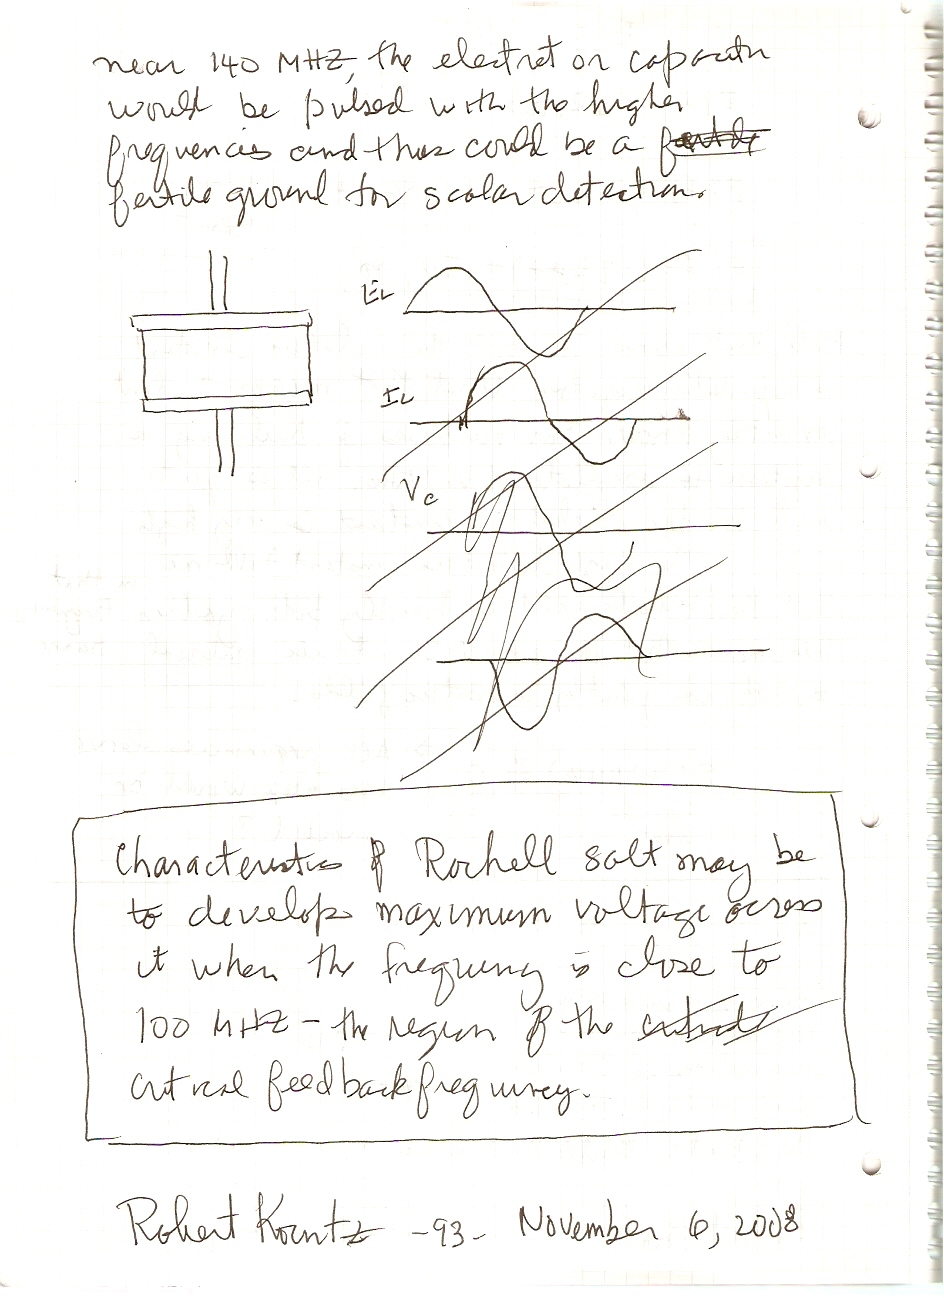 near 140 MHZ, the electret or capacitor
would be pulsed with the higher
frequencies and thus could be a
fertile ground for scalar detection.
EL
IL
Vc
Characteristics of Rochell salt may be
to develop maximum voltage across
it when the frequency is close to
100 MHZ - the region of the
critical feedback frequency.
Robert Kountz -93- November 6, 2008